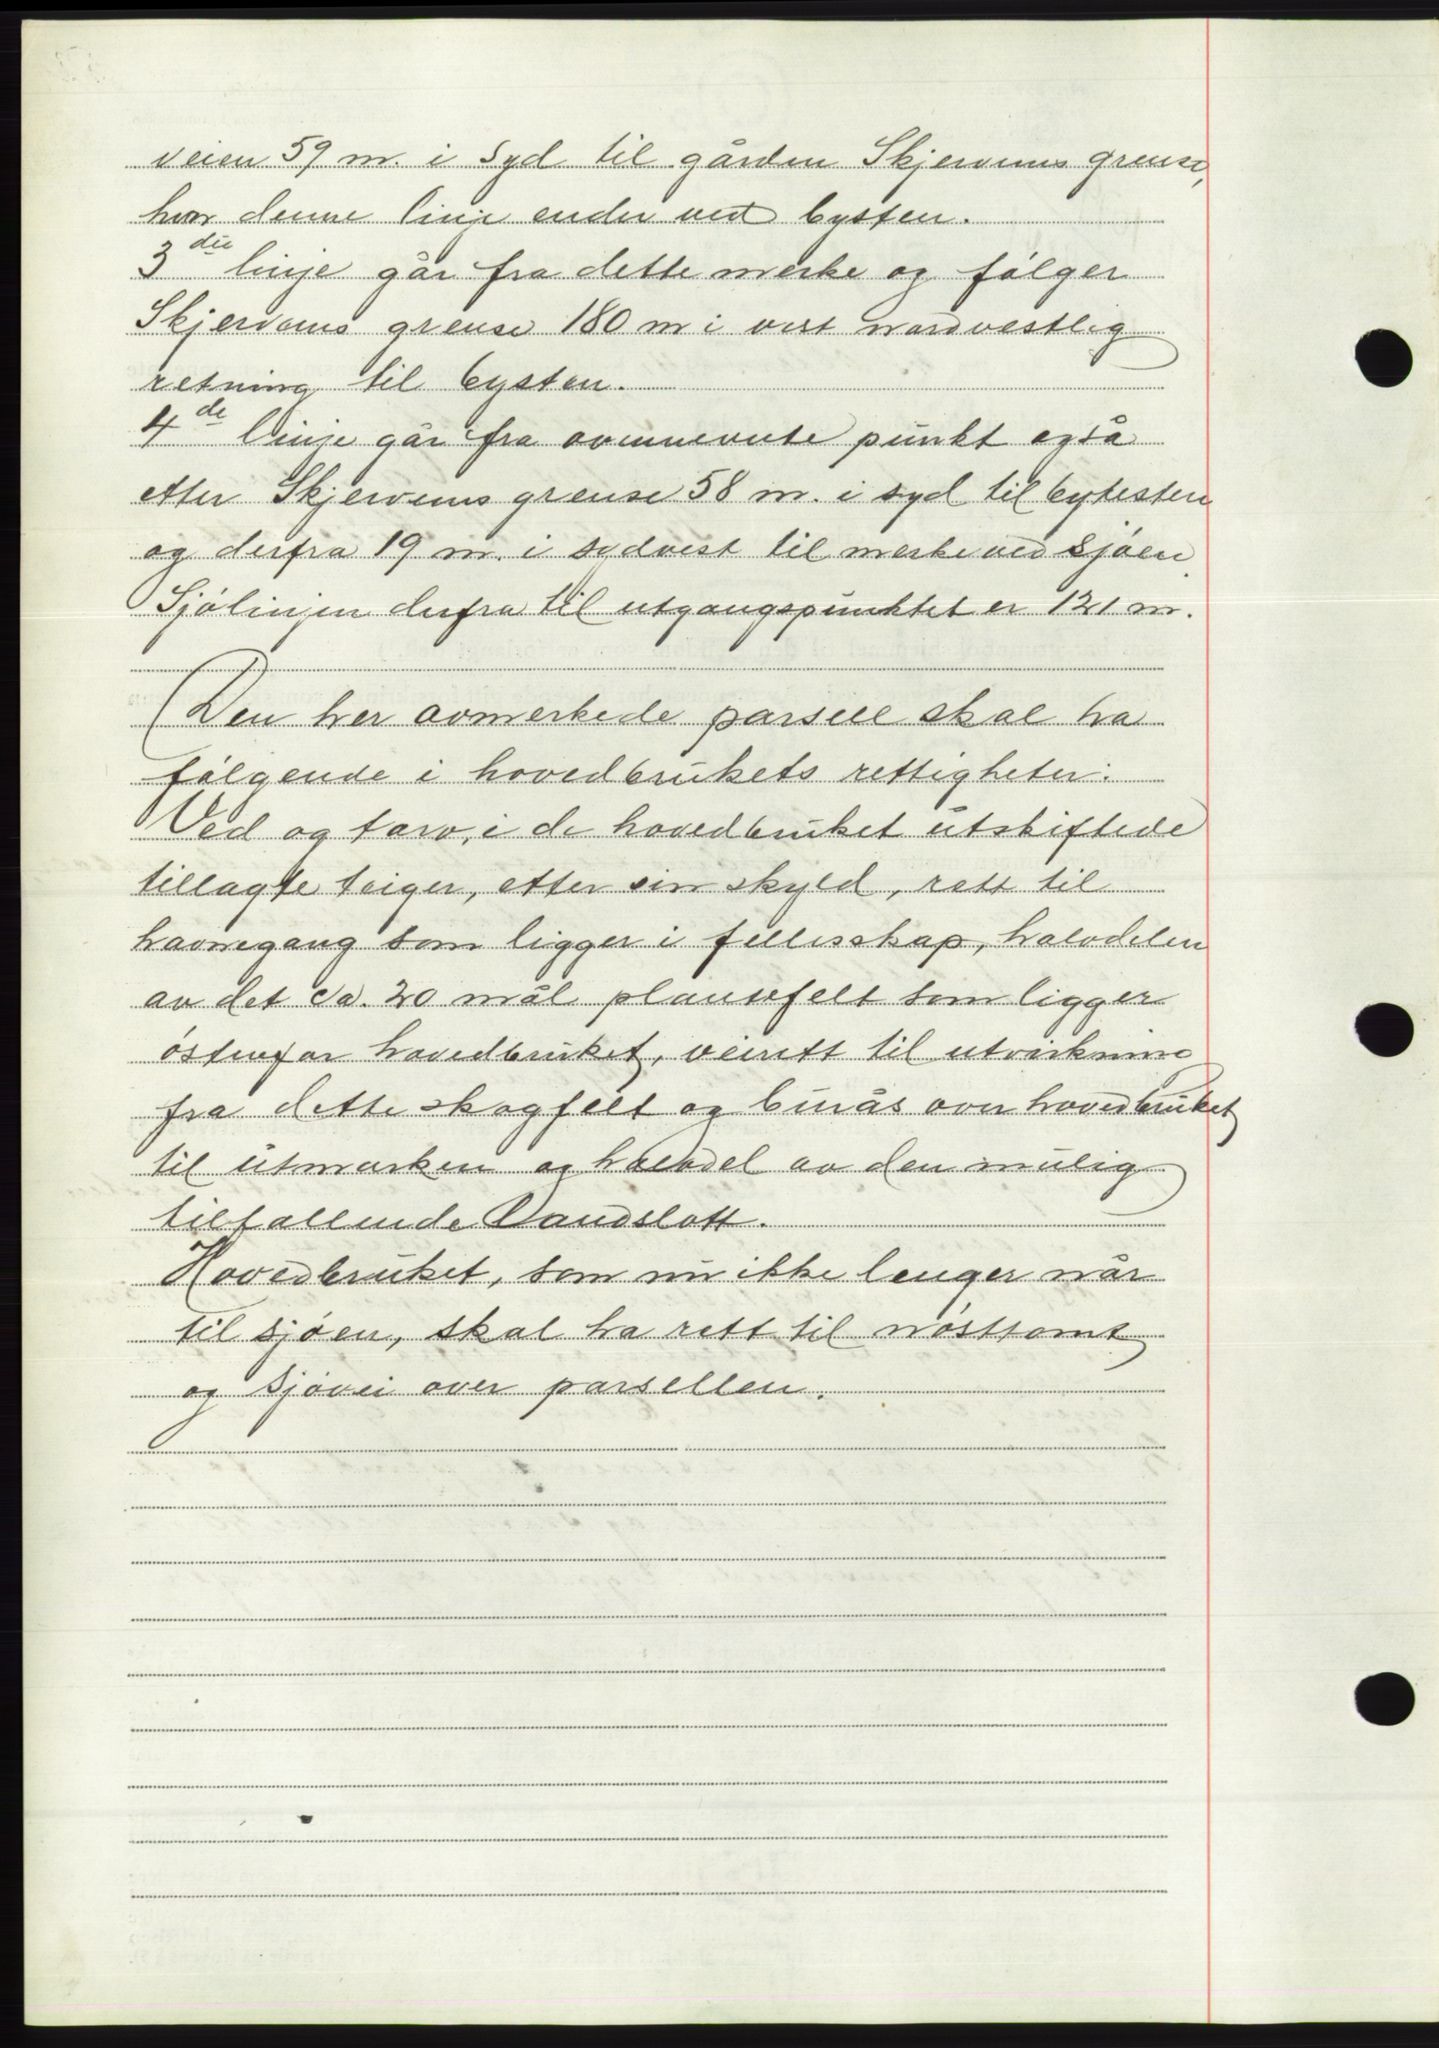 veien 59 m. i syd til gården Skjervens grense,
hvor denne linje ender ved bysten.
3die linje går fra dette merke og følger
Skjervens grense 180 m i vest nordvestlig
retning til bysten.
4de linje går fra ovennevnte punkt også
etter Skjervens grense 58 m. i syd til bytesten
og derfra 19 m. i sydvest til merke ved sjøen.
Sjølinjen derfra til utgangspunktet er 121 m.
Den her avmerkede parsell skal ha
følgende i hovedbrukets rettigheter:
Ved og torv, i de hovedbruket utskiftede
tillagte teiger, etter sin skyld, rett til
havnegang som ligger i fellesskap, halvdelen
av det ca. 20 mål plantefelt som ligger
østenfor hovedbruket, veirett til utvirkning
fra dette skogfelt og burås over hovedbruket
til utmarken og halvdel av den mulig
tilfallende landslott.
Hovedbruket, som nu ikke lenger når
til sjøen, skal ha rett til nøsttomt
og sjøvei over parsellen.